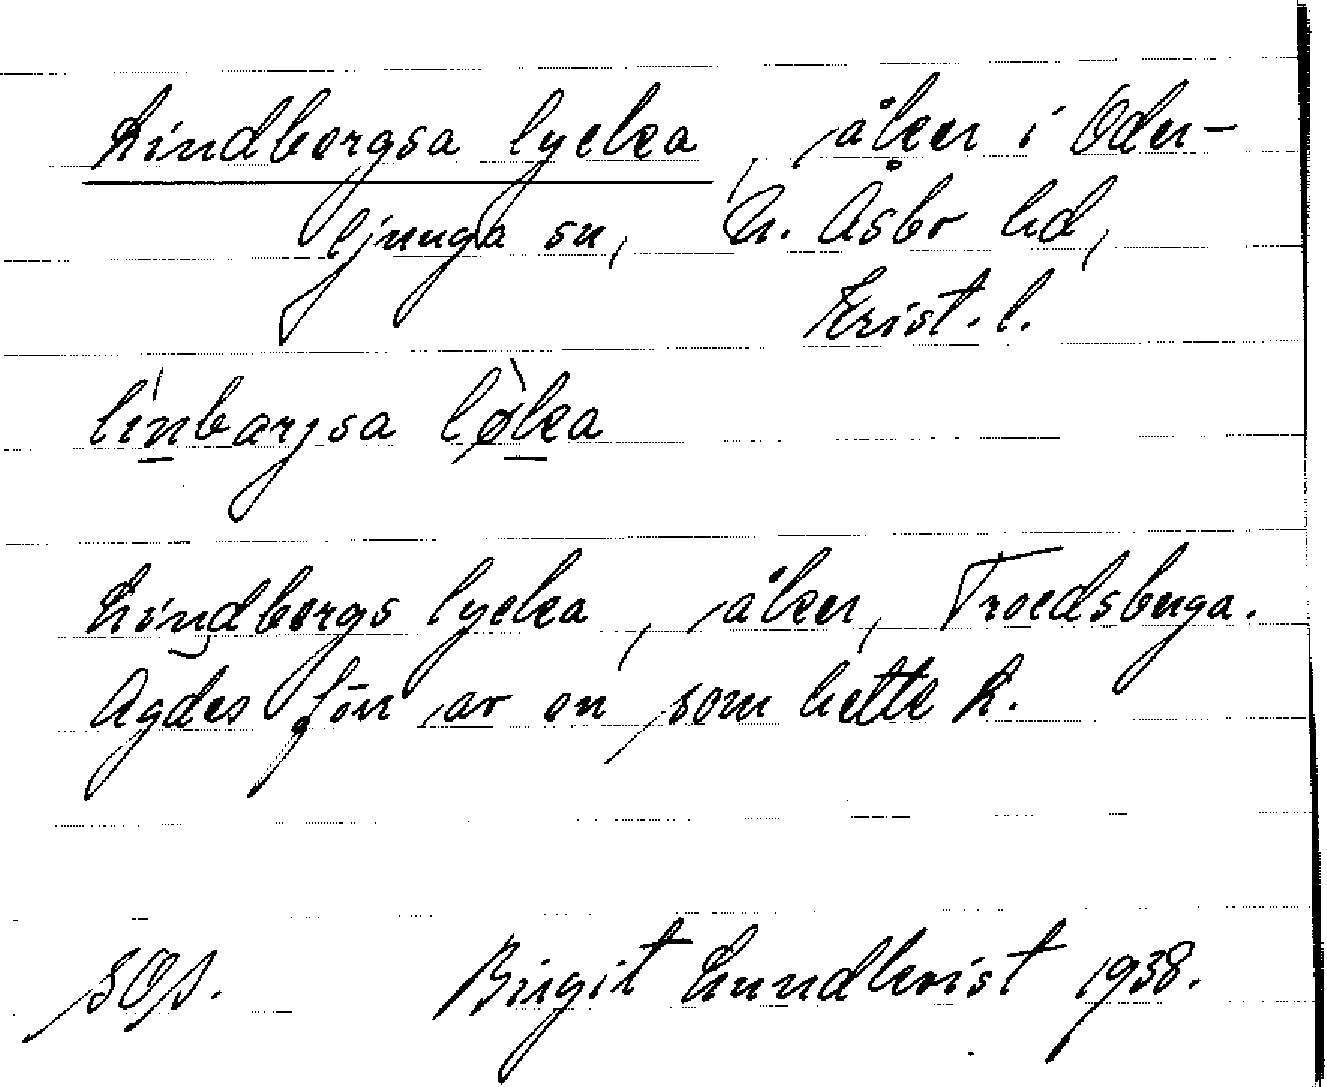 Lindbergsa lycka, åker i Oder-
ljunga sn, N. Åsbo hd,
Krist. l.
linbarjsa løka
Lindbergs lycka, åker, Troedsberga.
Ägdes förr av en som hette L.
SOS. Birgit Lundkvist 1938.